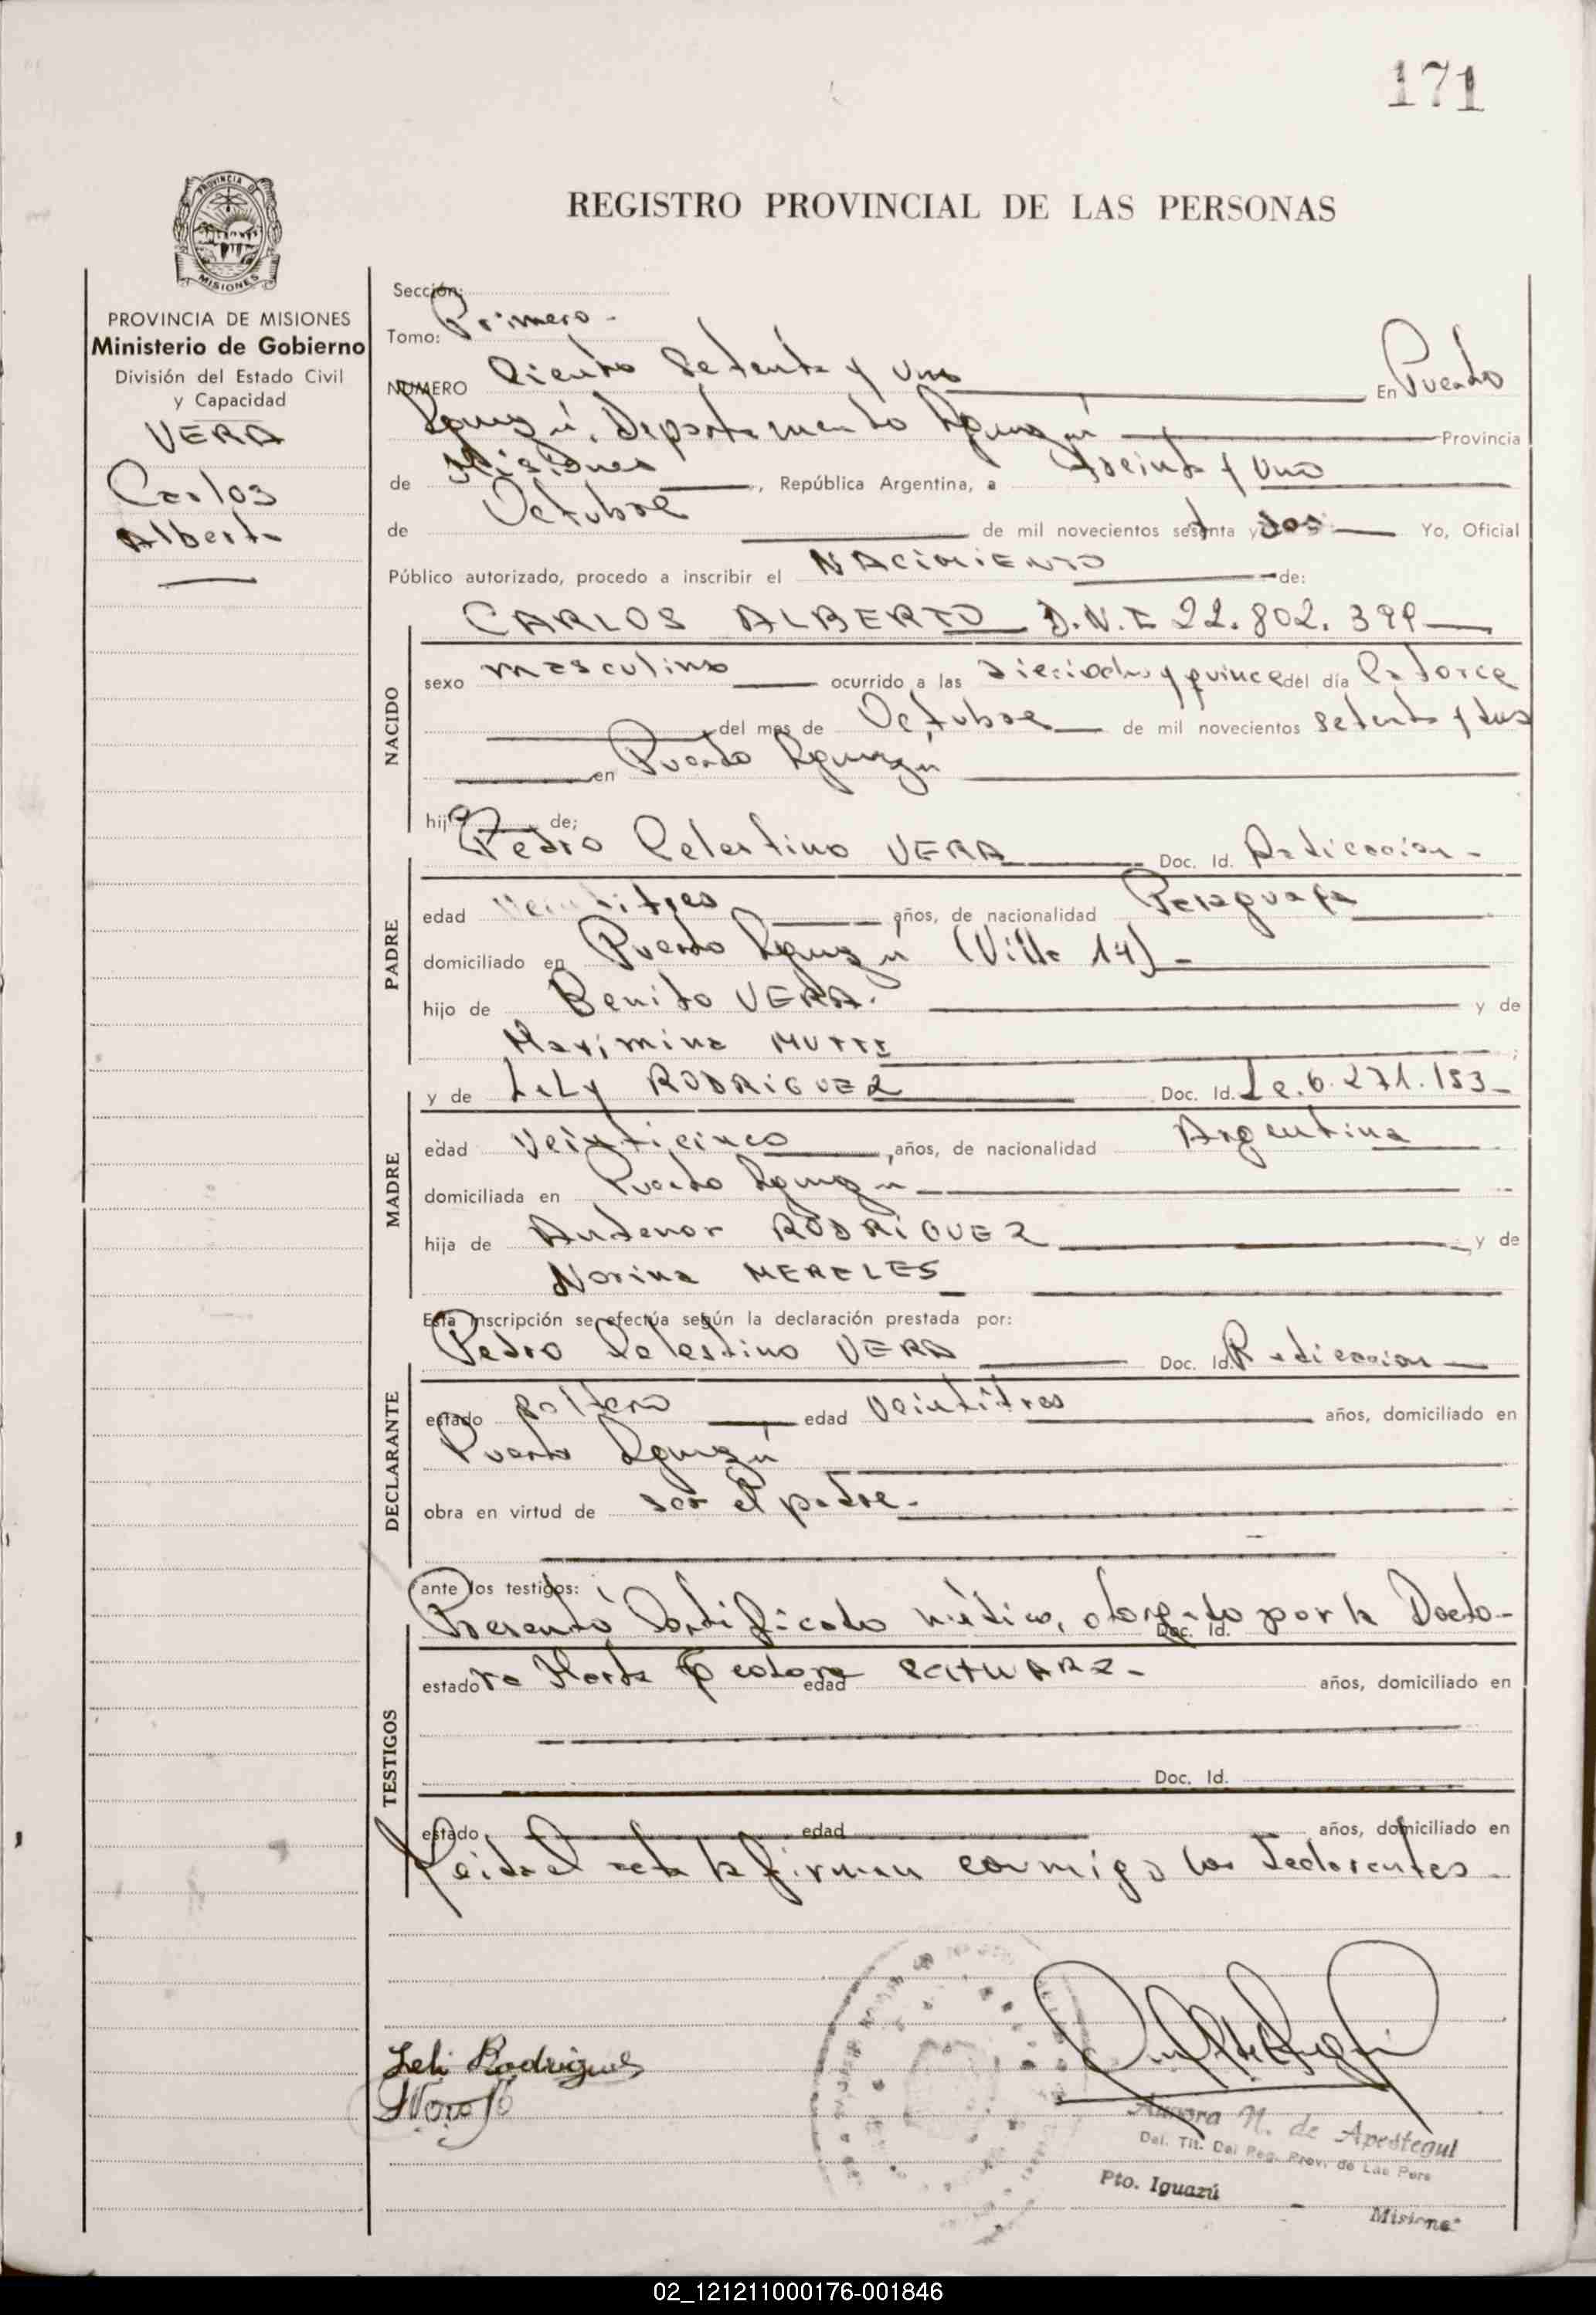 171
PROVINCIA DE
MISIONES
REGISTRO PROVINCIAL DE LAS PERSONAS
PROVINCIA DE MISIONES
Ministerio de Gobierno
División del Estado Civil
y Capacidad
VERA
Carlos
Alberto
Sección:
Tomo: Primero -
NUMERO Ciento Setenta y uno En Puerto
Iguazú, Departamento Iguazú Provincia
de Misiones, República Argentina, a treinta y uno
de Octubre de mil novecientos setenta y dos Yo, Oficial
Público autorizado, procedo a inscribir el NACIMIENTO de:
NACIDO
CARLOS ALBERTO D.N.I 22.802.399
sexo masculino ocurrido a las dieciocho y quince del día Catorce
del mes de Octubre de mil novecientos setenta y dos
en Puerto Iguazú
hijo de;
PADRE
Pedro Celestino VERA Doc. Id. Radicacion -
edad veintitres años, de nacionalidad Paraguaya
domiciliado en Puerto Iguazú (Villa 14) -
hijo de Benito VERA. y de
Maximina
MADRE
y de LiLy RODRIGUEZ Doc. Id. Lc. 6.271.153 -
edad Veinticinco años, de nacionalidad Argentina
domiciliada en Puerto Iguazú
hija de Antenor RODRIGUEZ y de
Norina MERELES
Esta inscripción se efectúa según la declaración prestada por:
DECLARANTE
Pedro Celestino VERA Doc. Id. Radicacion
estado soltero edad Veintitres años, domiciliado en
Puerto Iguazú
obra en virtud de ser el padre.
ante los testigos:
TESTIGOS
Presentó Certificado médico, otorgado por la Docto-
Doc. Id.
estado ra Herta edad SCHWARZ - años, domiciliado en
Doc. Id.
estado edad años, domiciliado en
Leida el acta la firman conmigo los declarantes -
Leli Rodrigues
Aurora N. de Apestegui
Del. Tit. Del Reg. Prov. de Las Pers
Pto. Iguazú - Misiones
02_121211000176-001846